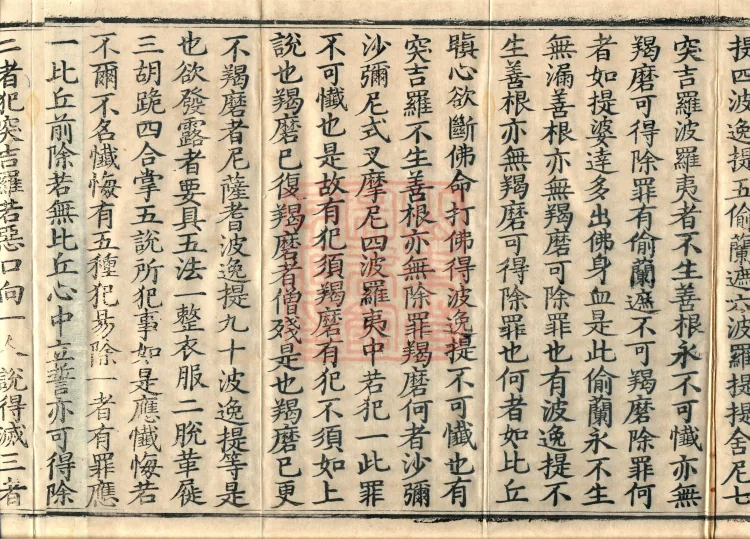 提四波逸提五偷蘭遮六波羅提提舍尼七
突吉羅波羅夷者不生善根永不可懺亦無
羯磨可得除罪有偷蘭遮不可羯磨除罪何
者如提婆達多出佛身血是此偷蘭永不生
無漏善根亦無羯磨可除罪也有波逸提不
生善根亦無羯磨可得除罪也何者如比丘
瞋心欲斷佛命打佛得波逸提不可懺也有
突吉羅不生善根亦無除罪羯磨何者沙彌
沙彌尼式叉摩尼四波羅夷中若犯一此罪
不可懺也是故有犯須羯磨有犯不須如上
說也羯磨已復羯磨者僧殘是也羯磨已更
不羯磨者尼薩耆波逸提九十波逸提等是
也欲發露者要具五法一整衣服二脫革屣
三胡跪四合掌五說所犯事如是應懺悔若
不爾不名懺悔有五種犯易除一者有罪應
一比丘前除若無比丘心中立誓亦可得除
二者犯突吉羅若惡口向一人說得滅三者